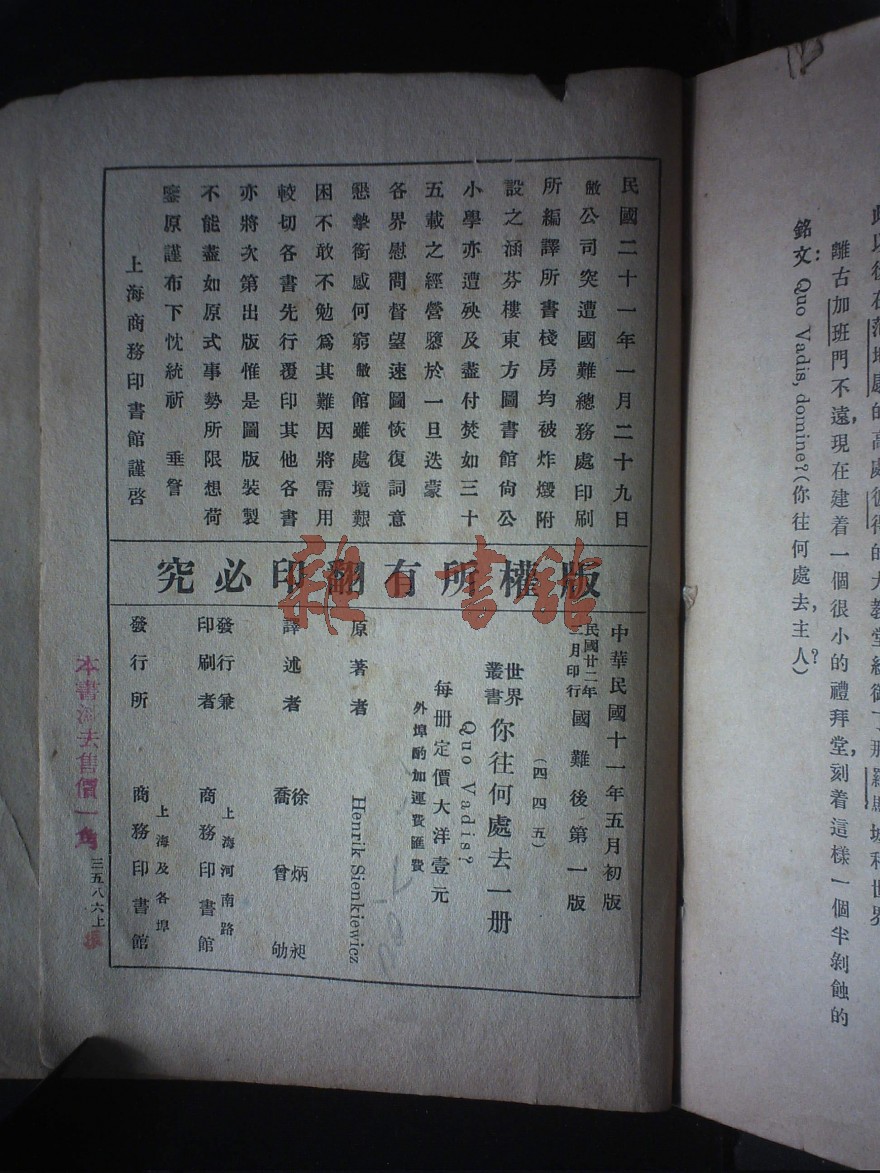 離古加班門不遠，現在建着一個很小的禮拜堂，刻着這樣一個半剝蝕的
銘文：Quo Vadis, domine?(你往何處去，主人？)
民國二十一年一月二十九日
敝公司突遭國難總務處印刷
所編譯所書棧房均被炸燬附
設之涵芬樓東方圖書館尙公
小學亦遭殃及盡付焚如三十
五載之經營隳於一旦迭蒙
各界慰問督望速圖恢復詞意
懇摯銜感何窮敝館雖處境艱
困不敢不勉爲其難因將需用
較切各書先行覆印其他各書
亦將次第出版惟是圖版裝製
不能盡如原式事勢所限想荷
鑒原謹布下忱統祈 垂詧
上海商務印書館謹啓
版權所有翻印必究
中華民國十一年五月初版
民國廿二年
月印行 國難後第一版
(四四五)
世界
叢書 你往何處去一册
Quo Vadis?
每册定價大洋壹元
外埠酌加運費匯費
原著者 Henrik Sienkiewicz
譯述者 徐炳昶
喬曾劬
發行兼
印刷者 上海河南路
商務印書館
發行所 上海及各埠
商務印書館
三五八六上
雜·書館